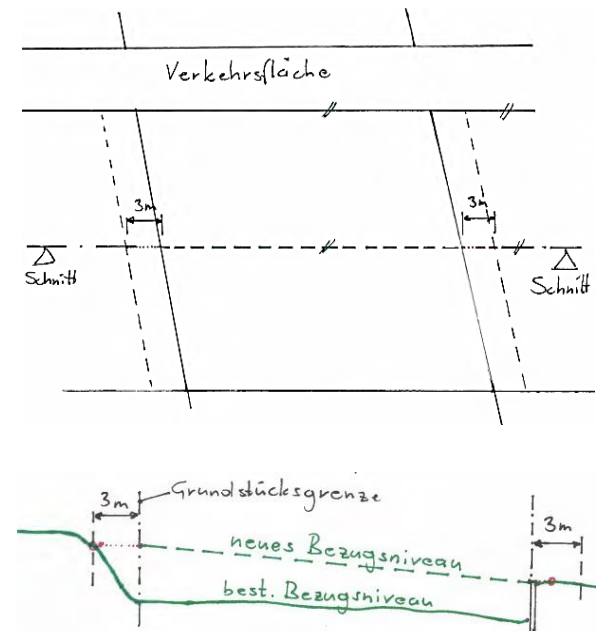 Verkehrsfläche
3m
3m
Schnitt
Schnitt
3m
Grundstücksgrenze
3m
neues Bezugsniveau
best. Bezugsniveau